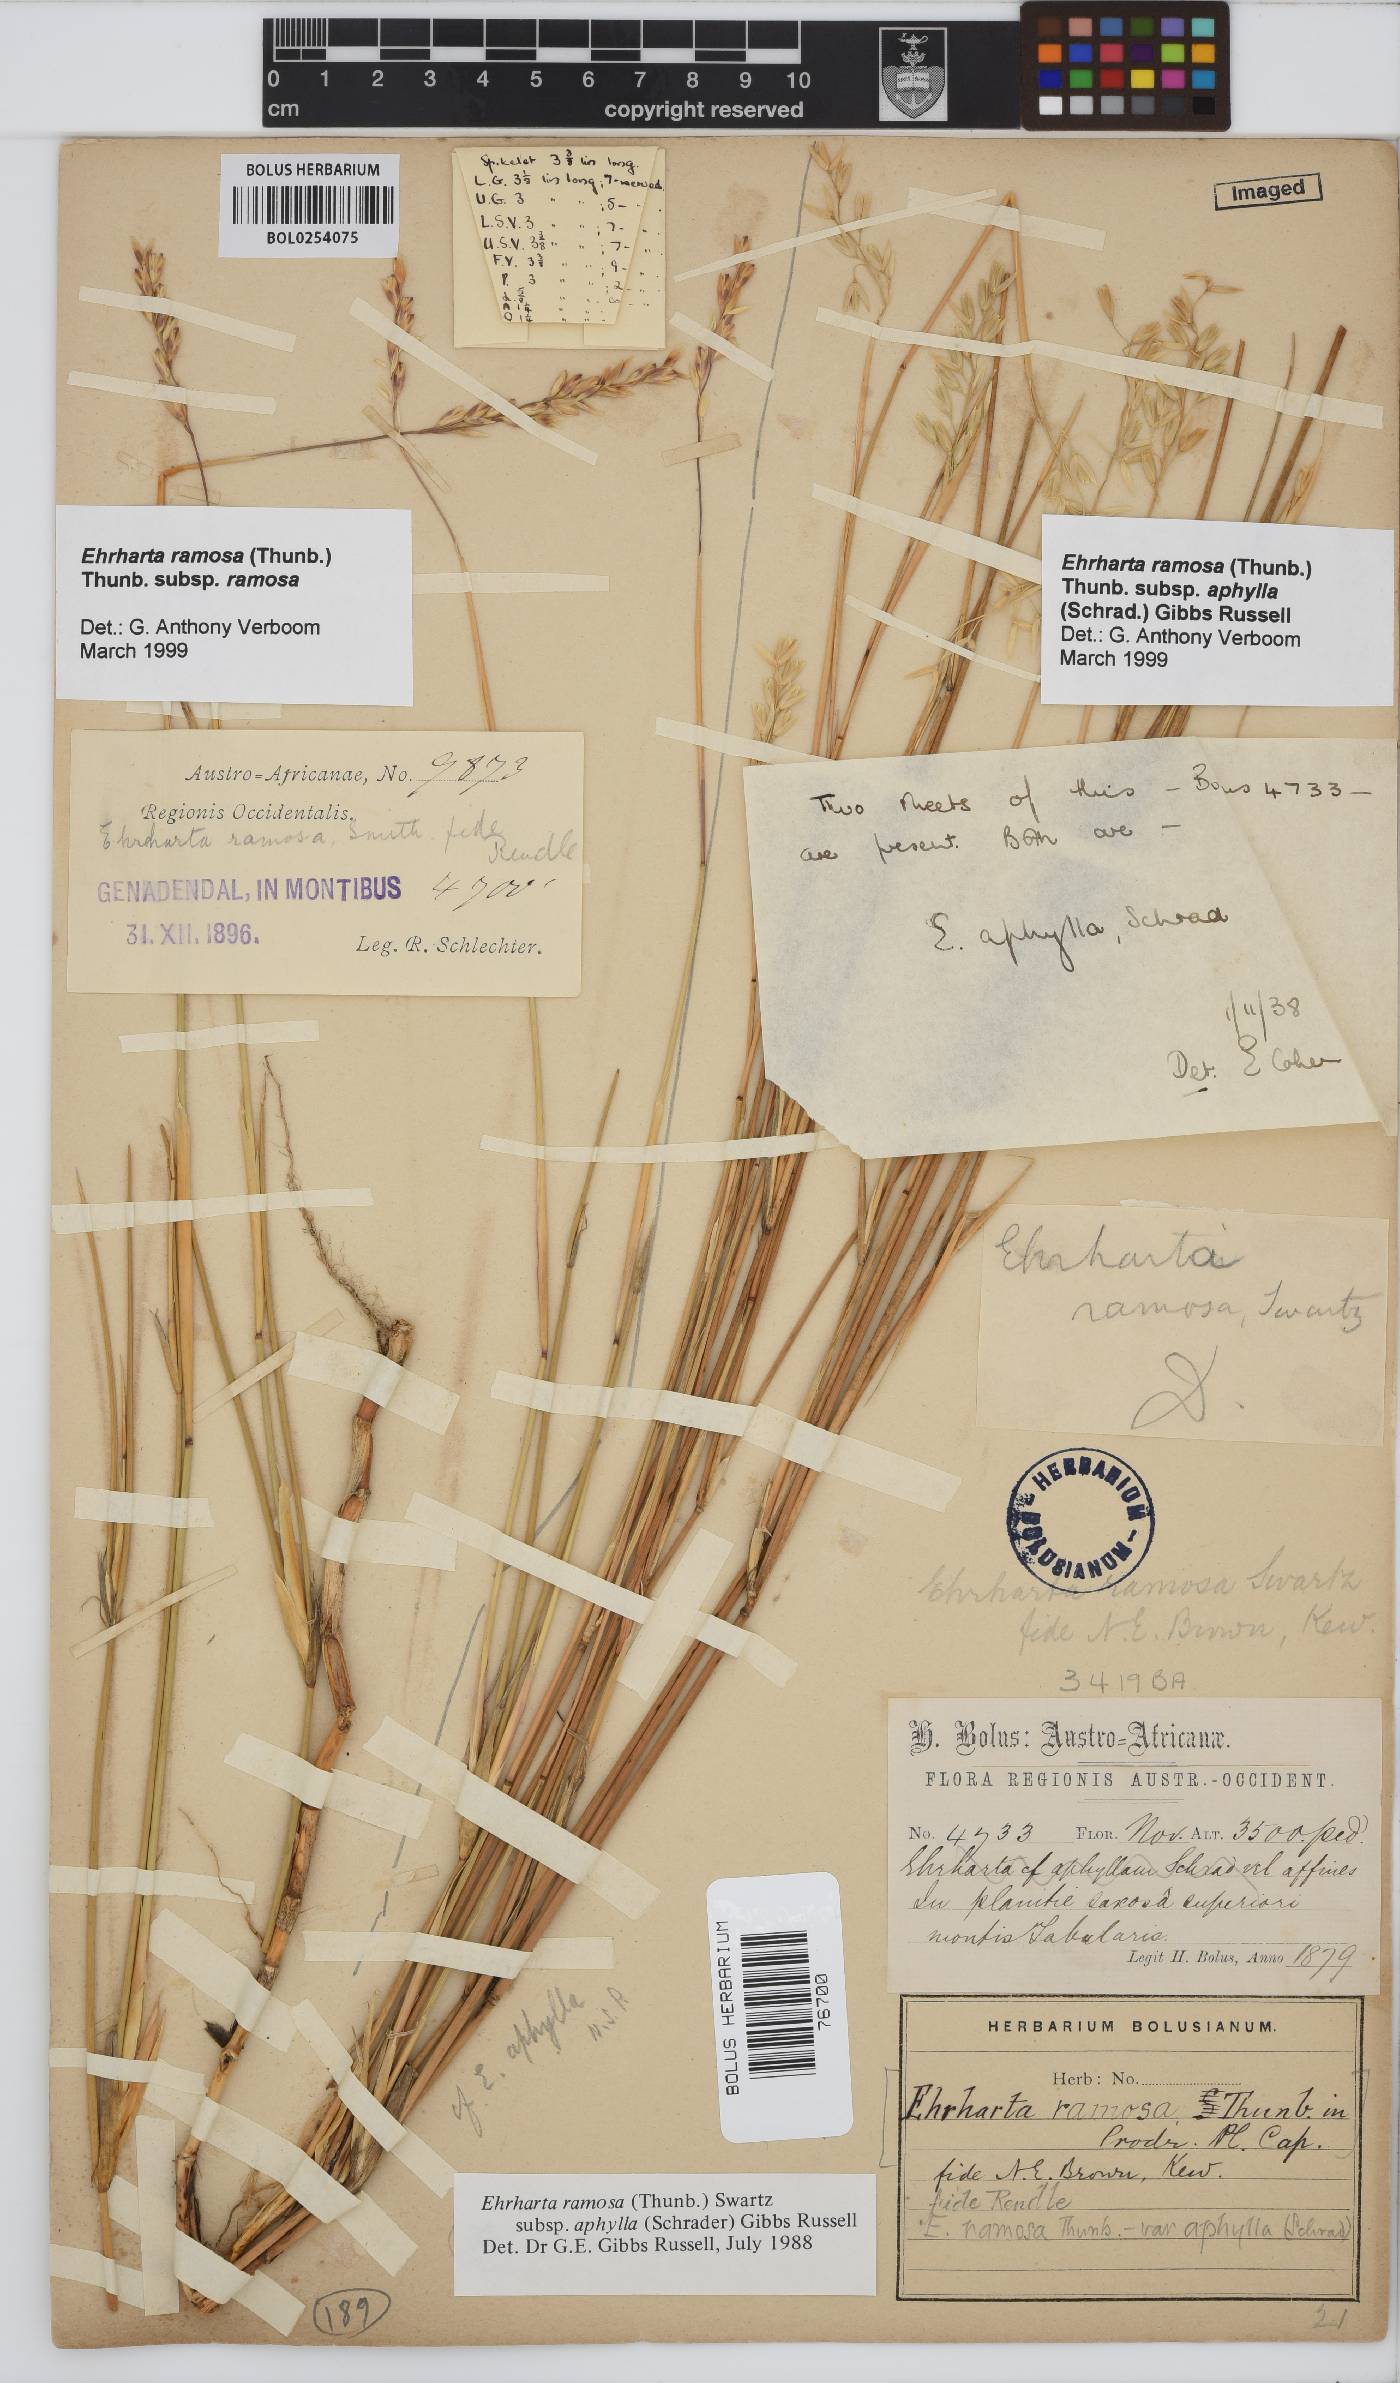 0 1 2 3 4 5 6 7 8 9 10
cm
copyright reserved
BOLUS HERBARIUM
BOL0254075
Spikelet 3 3/8 lin long.
L.G. 3 1/2 lin long; 7-nerved.
U.G. 3 " " ; 5- " .
L.S.V. 3 " " ; 7- " .
U.S.V. 3 3/8 " " ; 7- " .
F.V. 3 3/8 " " ; 9- " .
P. 3 " " ; 2- " .
Imaged
Ehrharta ramosa (Thunb.)
Thunb. subsp. ramosa
Det.: G. Anthony Verboom
March 1999
Ehrharta ramosa (Thunb.)
Thunb. subsp. aphylla
(Schrad.) Gibbs Russell
Det.: G. Anthony Verboom
March 1999
Austro=Africanae, No. 9873
Regionis Occidentalis.
Ehrharta ramosa, fide
Rendle
GENADENDAL, IN MONTIBUS 4700'
31. XII. 1896.
Leg. R. Schlechter.
Two sheets of this - Bolus 4733 -
are present. Both are -
E. aphylla, Schrad
1/11/38
Det. E Cohen
Ehrharta
ramosa, Swartz
D.
HERBARIUM BOLUSIANUM
Ehrharta ramosa Swartz
fide N.E. Brown, Kew.
3419BA
H. Bolus: Austro=Africanæ.
FLORA REGIONIS AUSTR.-OCCIDENT.
No. 4733 FLOR. Nov. ALT. 3500. ped.
Ehrharta cf aphyllam Schrad vel affines
In planitie saxosâ superiori
montis Tabularis.
Legit H. Bolus, Anno 1879.
BOLUS HERBARIUM
76700
cf. E. aphylla
N.S.P.
HERBARIUM BOLUSIANUM.
Herb: No.
Ehrharta ramosa, Thunb. in
Prodr. Pl. Cap.
fide N.E. Brown, Kew.
fide Rendle
E. ramosa Thunb. - var aphylla (Schrad)
Ehrharta ramosa (Thunb.) Swartz
subsp. aphylla (Schrader) Gibbs Russell
Det. Dr G.E. Gibbs Russell, July 1988
189
21